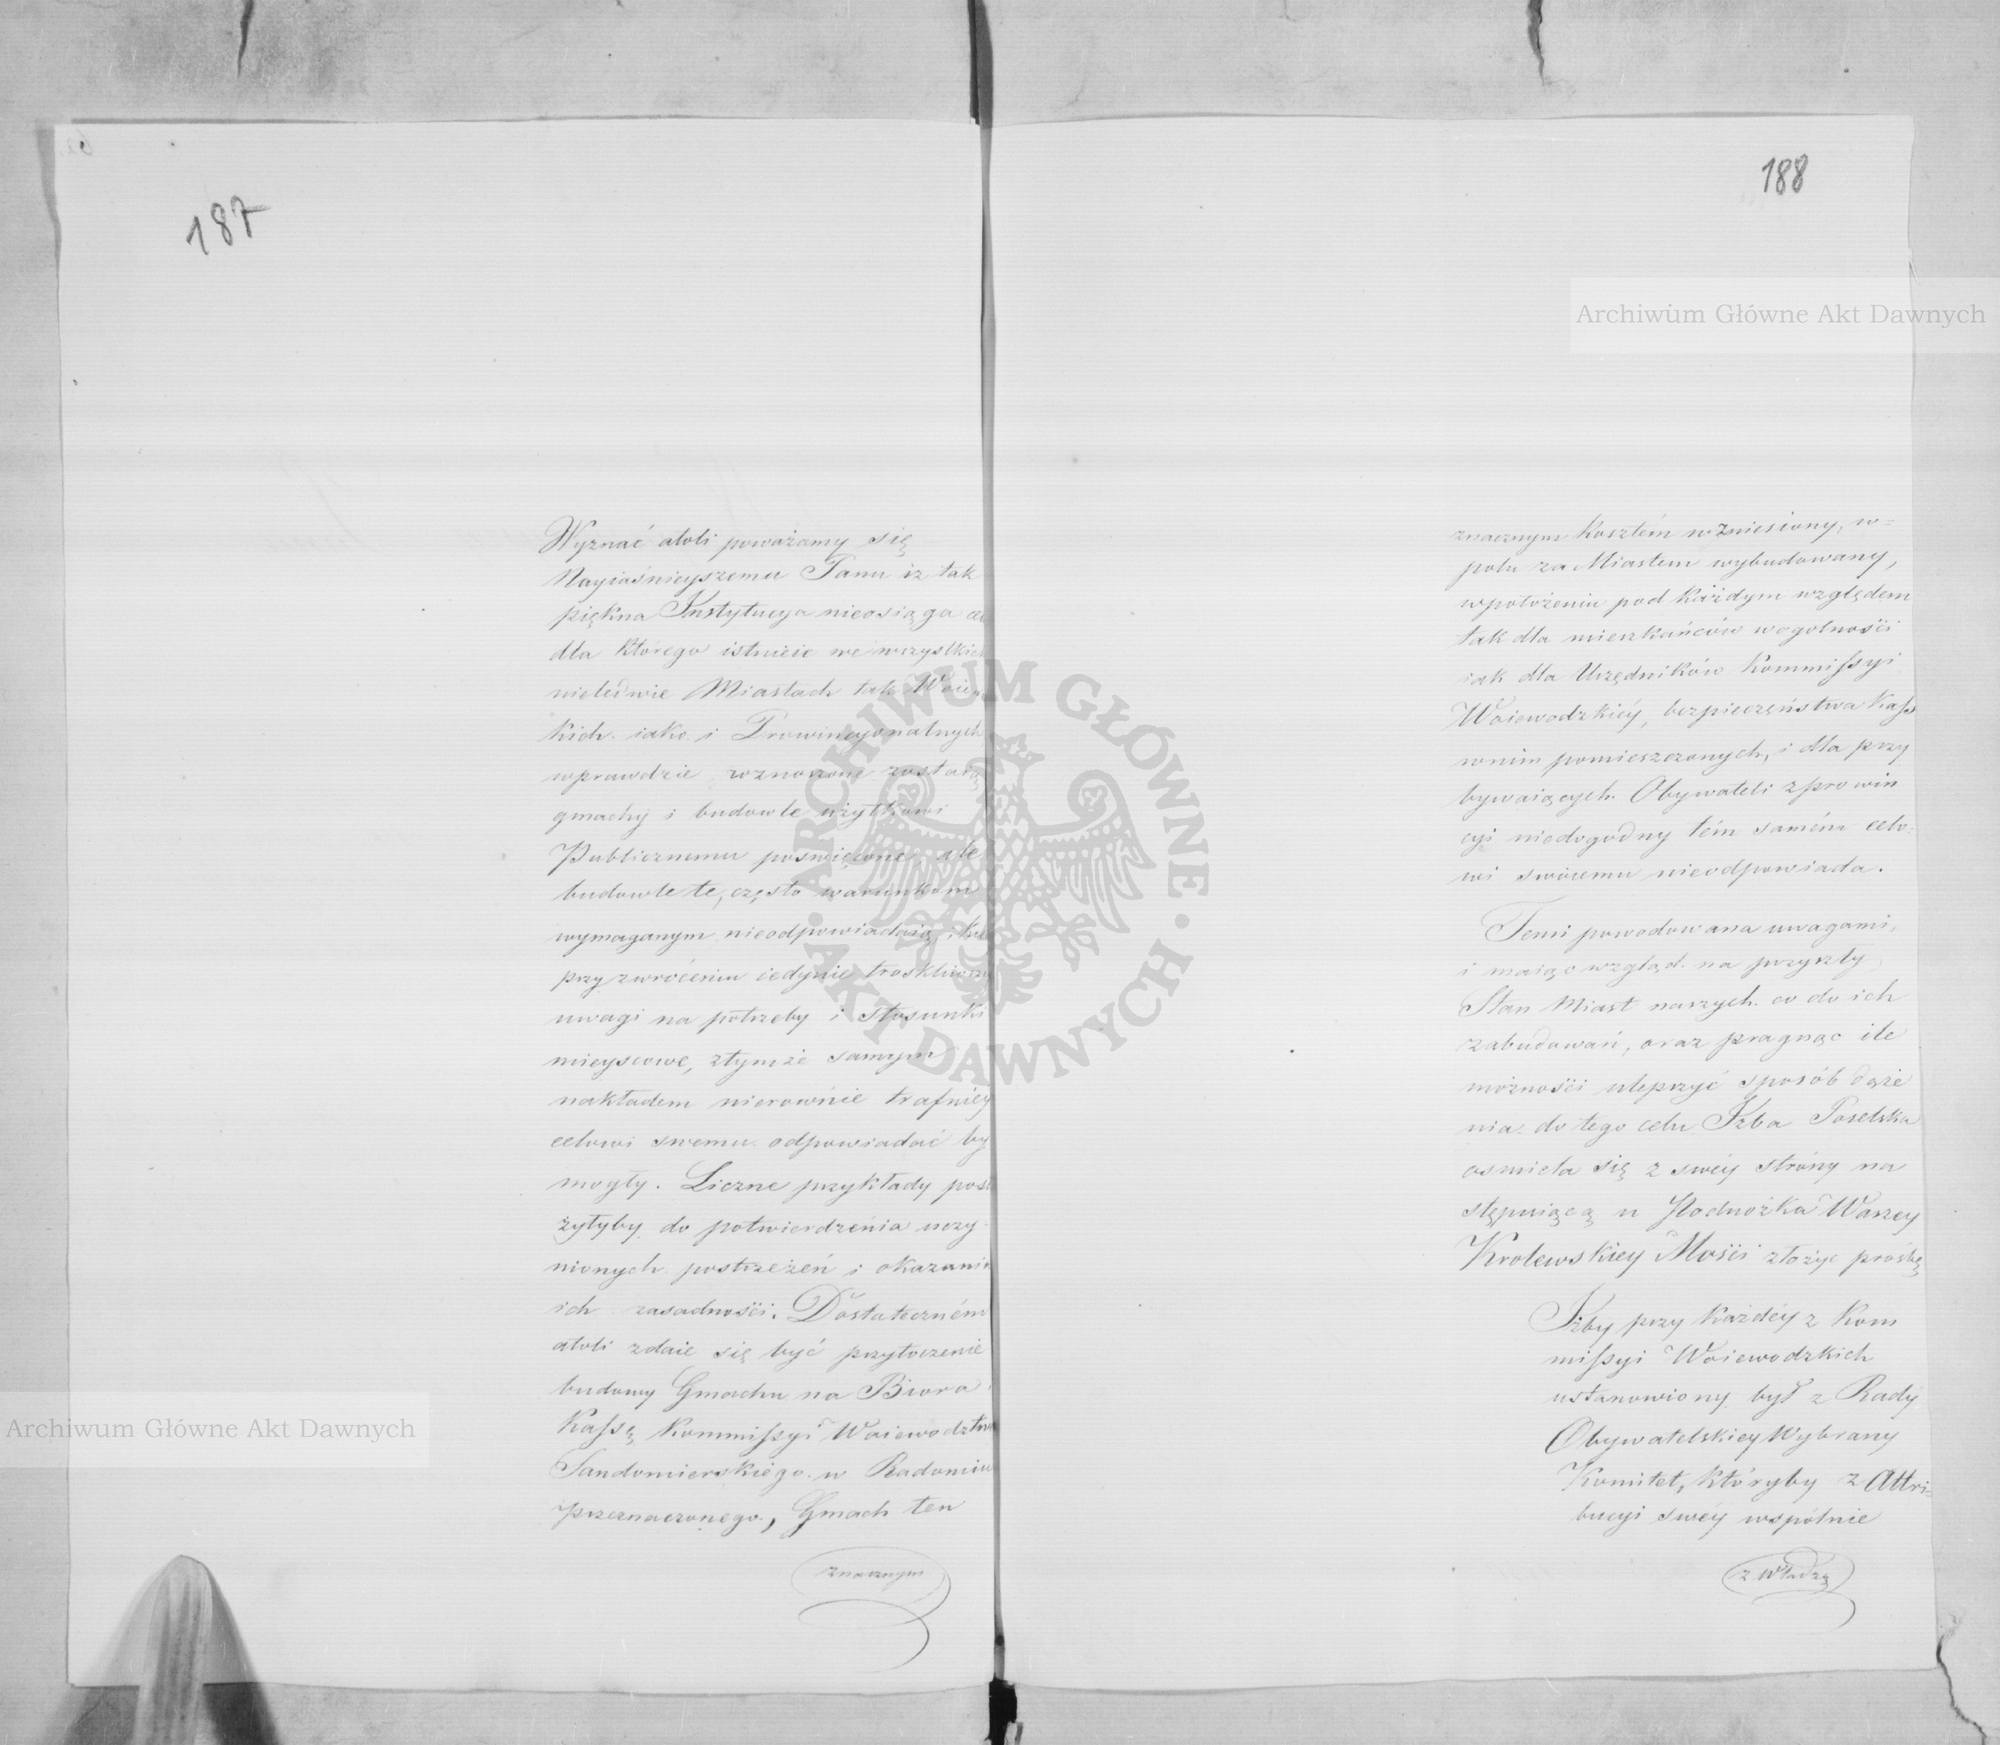 187
Wyznać atoli poważamy się
Nayiaśnieyszemu Panu iż tak
piękna Instytucya nieosiąga ce
dla którego istnieie we wszystkich
nieledwie Miastach tak Woie
kich iako i Prowincyonalnych
wprawdzie wznoszone zostaią
gmachy i budowle użytkowi
Publicznemu poświęcone, ale
budowle te, często warunkom
wymaganym nieodpowiadaią,
przy zwróceniu iedynie troskliwey
uwagi na potrzeby i stosunki
mieyscowe, ztymże samym
nakładem nierownie trafniey
celowi swemu odpowiadać by
mogły. Liczne przykłady posł
żyłyby do potwierdzenia uczy-
nionych postrzeżeń i okazania
ich zasadności. Dostateczném
atoli zdaie się być przytoczenie
budowy Gmachu na Biora
Kassę Kommissyi Woiewodztwa
Sandomierskiego w Radomiu
przeznaczonego, Gmach ten
znacznym
188
znacznym kosztém wzniesiony, w=
polu za Miastem wybudowany,
wpołożeniu pod każdym względem
tak dla mieszkańców wogolności
iak dla Urzędników Kommissyi
Woiewodzkiéy, bezpieczeństwa Kass
wnim pomieszczonych, i dla przy
bywaiących Obywateli zprowin
cyi niedogodny tém samém celo-
wi swoiemu nieodpowiada.
Temi powodowana uwagami,
i maiąc wzgląd na przyszły
Stan Miast naszych co do ich
zabudowań, oraz pragnąc ile
możności ulepszyć sposób dąże
nia do tego celu Izba Poselska
osmiela się z swéy stróny na
stępuiącą u Podnóżka Waszey
Krolewskiey Mości złożyc prośbę
Iżby przy każdéy z Kom
missyi Woiewodzkich
ustanowiony był z Rady
Obywatelskiey Wybrany
Komitet, któryby z Attri=
bucyi swéy wspólnie
z Władzą
Archiwum Główne Akt Dawnych
Archiwum Główne Akt Dawnych
ARCHIWUM GŁÓWNE
AKT DAWNYCH